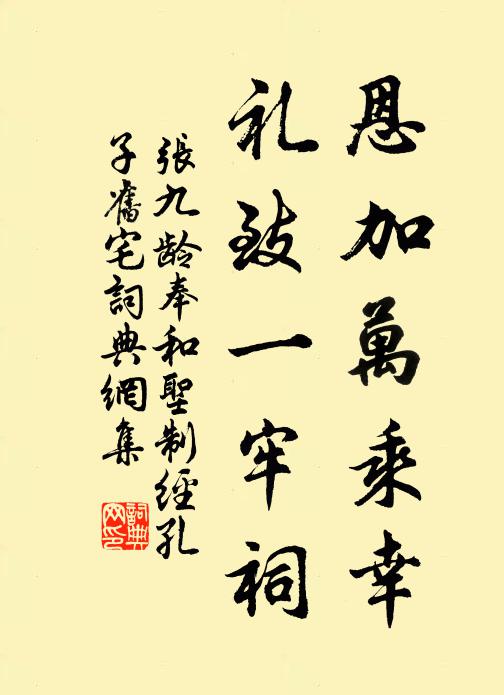 恩加萬乘幸
礼致一牢祠
張九龄奉和聖制經孔
子舊宅詞典網集
詞典网印